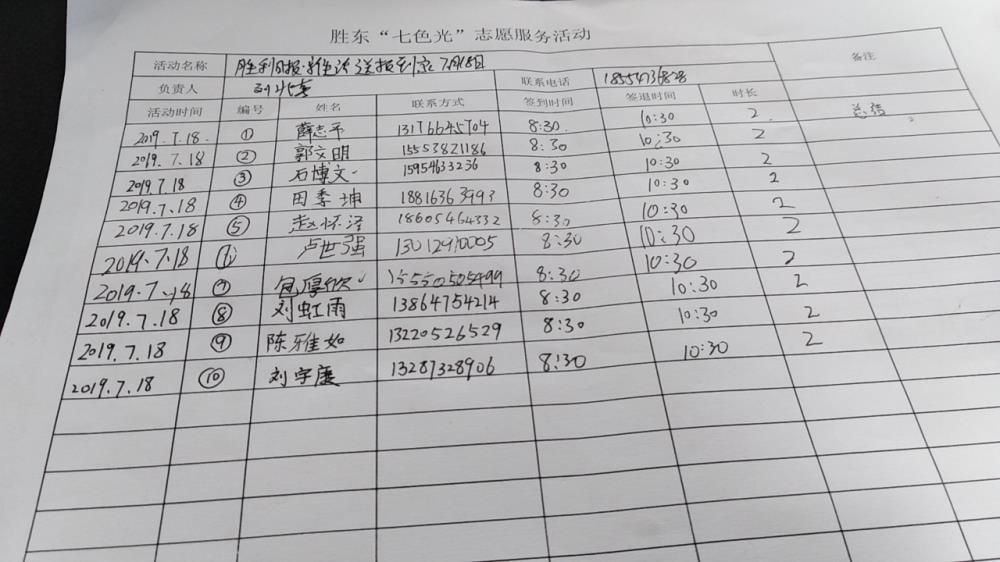 胜东“七色光”志愿服务活动
活动名称 胜利日报·新生活送报到家7月18日 备注
负责人 联系电话 18554736828
活动时间 编号 姓名 联系方式 签到时间 签退时间 时长
2019.7.18. ① 薛志平 13176645704 8:30. 10:30 2 总结
2019.7.18 ② 郭文明 15553821186 8:30 10:30 2
2019.7.18 ③ 石博文 15954633236 8:30 10:30 2
2019.7.18 ④ 田季坤 18816363993 8:30 10:30 2
2019.7.18 ⑤ 赵怀泽 18605464332 8:30 10:30 2
2019.7.18 卢世强 13012910005 8:30 10:30 2
2019.7.18 包厚欣 15550505499 8:30 10:30 2
2019.7.18 ⑧ 刘虹雨 13864754214 8:30 10:30 2
2019.7.18 ⑨ 陈雅如 13220526529 8:30 10:30 2
2019.7.18 ⑩ 刘宇晨 13287328906 8:30 10:30 2